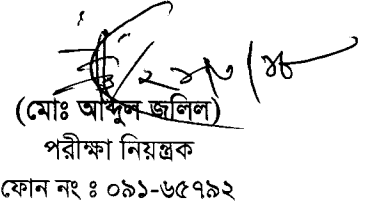 (মোঃ আব্দুল জলিল)
পরীক্ষা নিয়ন্ত্রক
ফোন নং ঃ ০৯১-৬৫৭৯২